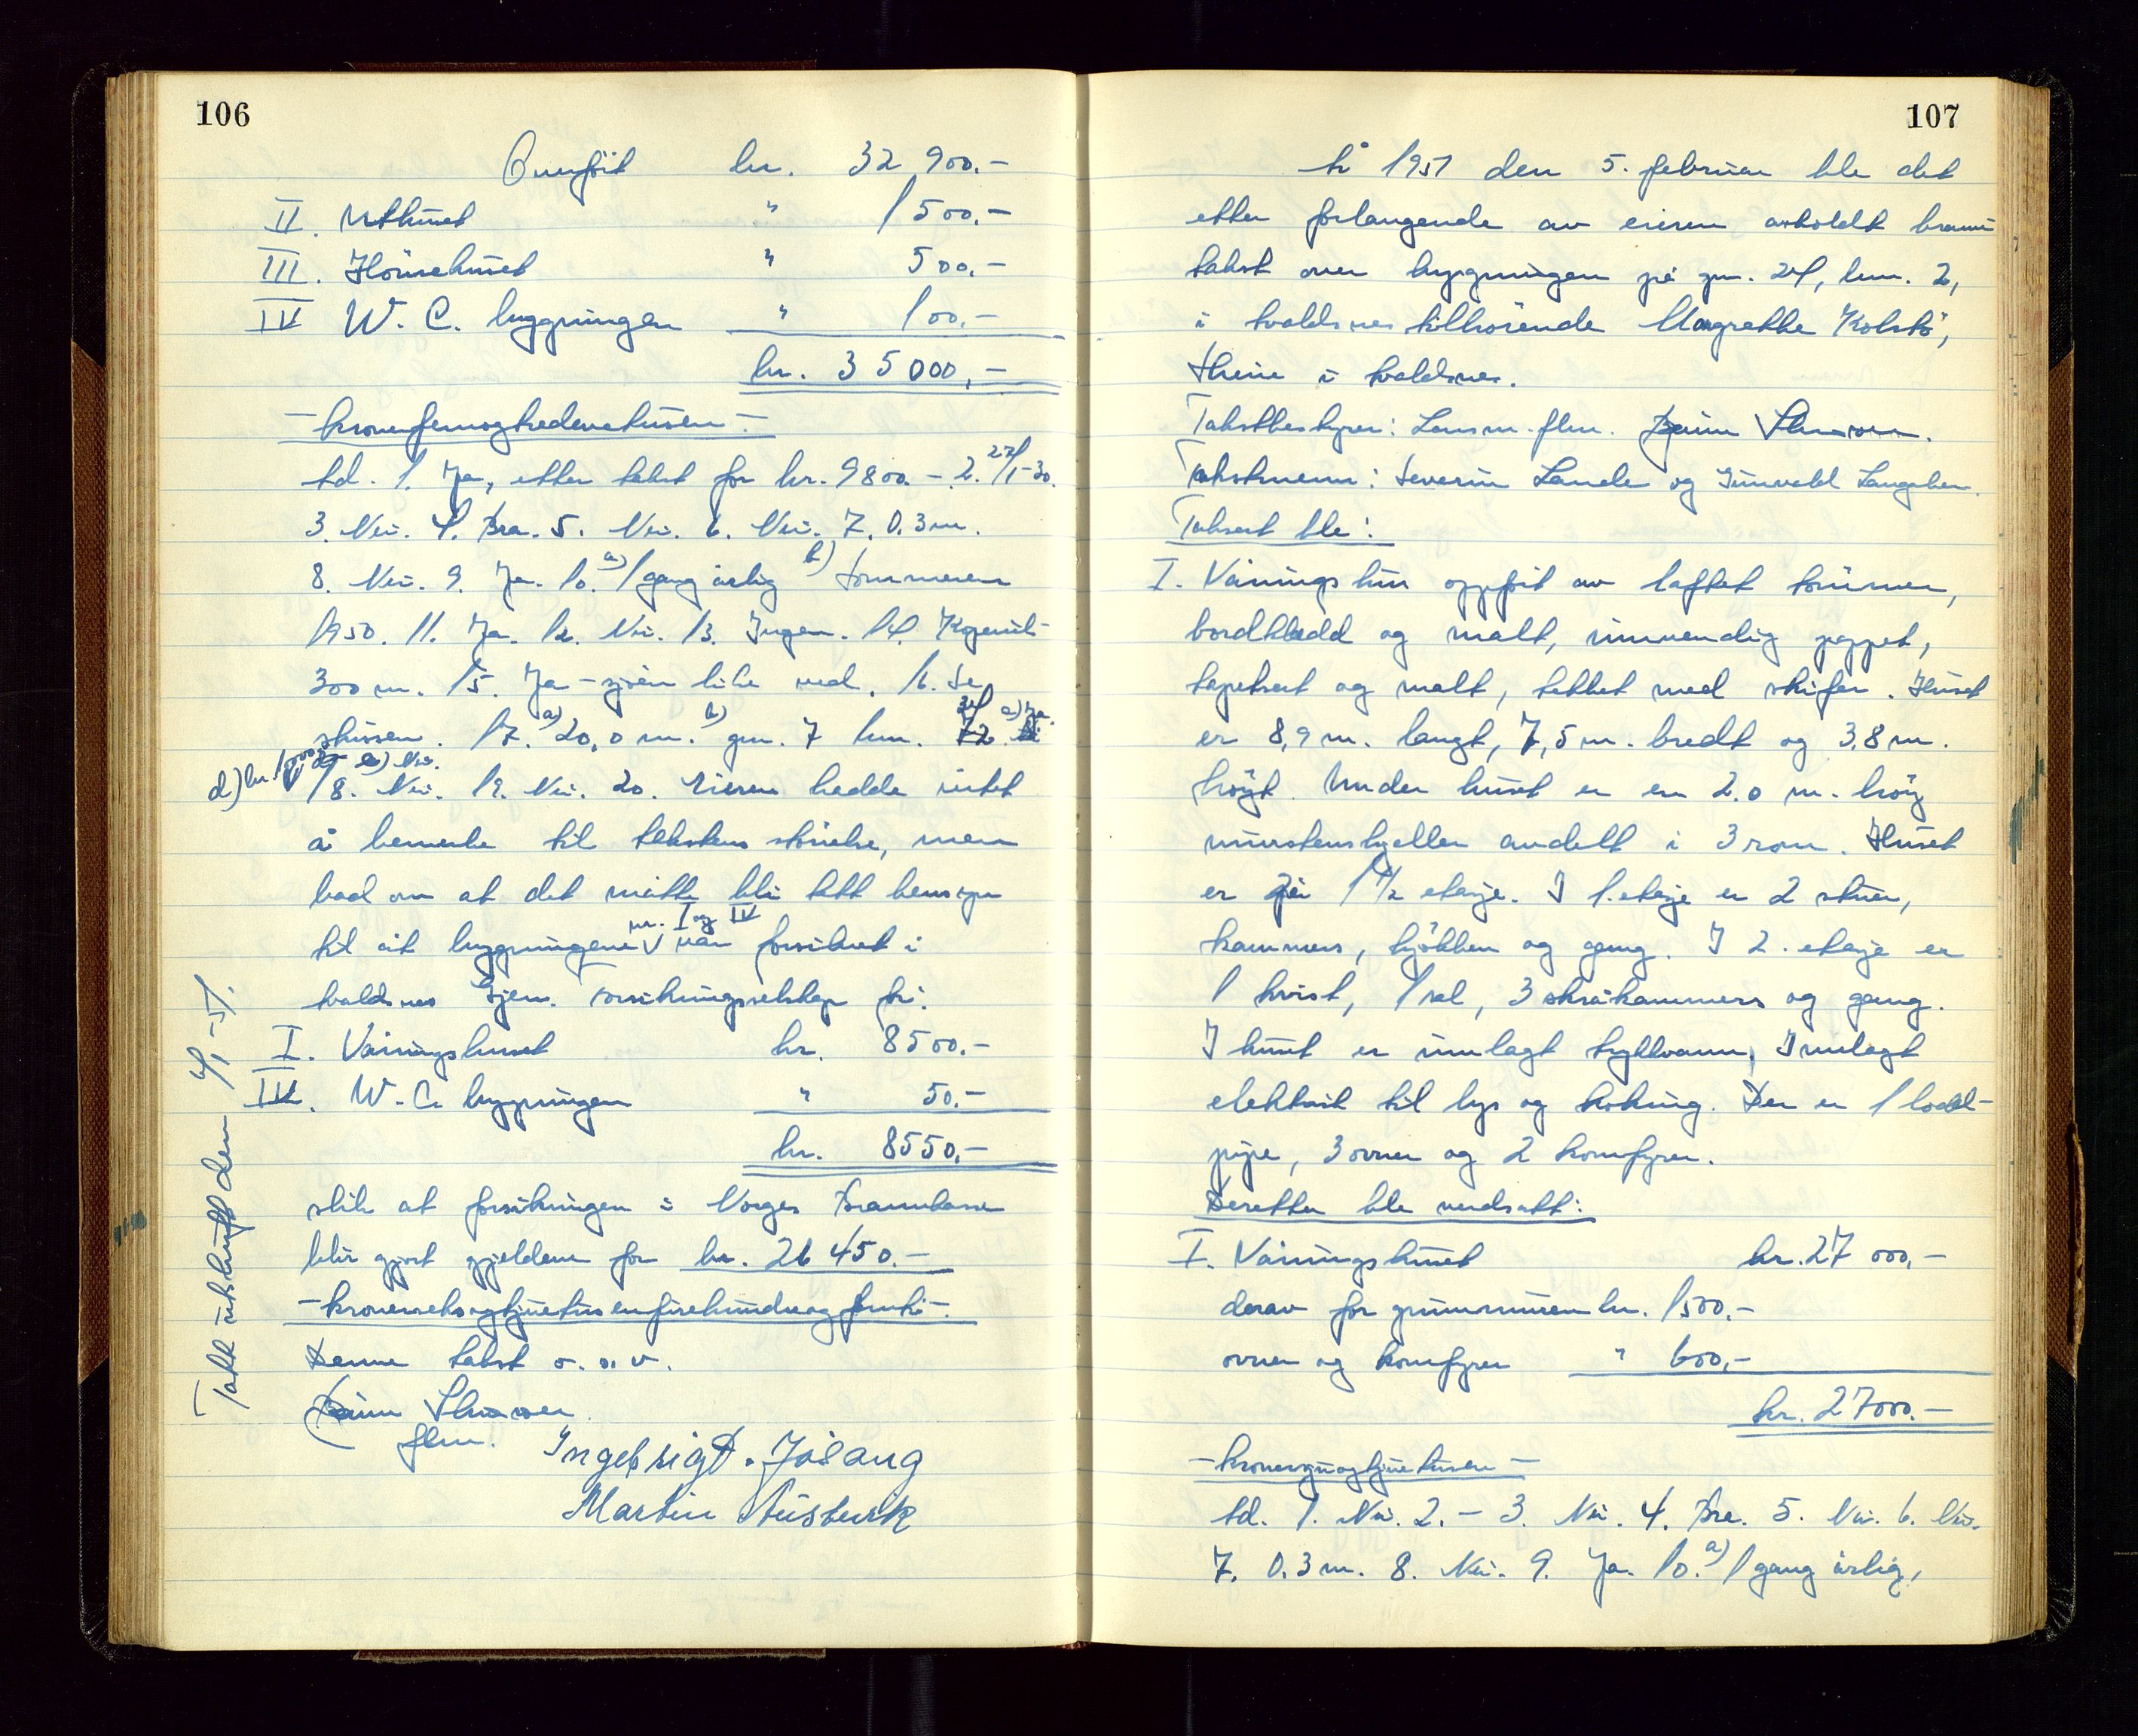 106
Overført kr. 32 900.-
II. Uthuset " 1 500.-
III. Hönsehuset " 500.-
IV W. C. byggningen " 100.-
kr. 35 000,-
-kronerfemogtredevetusen-
td. 1. Ja, etter takst for kr. 9800.- 2. 22/1-30.
3. Nei. 4. Bra. 5. Nei. 6. Nei. 7. 0.3 m.
8. Nei. 9. Ja. 10. a) 1 gang årlig b) Sommeren
1950. 11. Ja. 12. Nei. 13. Ingen. 14. Kopervik
300 m. 15. Ja - sjøen like ved. 16. Se
skissen. 17. a) 20,0 m. b) gnr. 7 bnr. 24 c) Ja.
d) kr. e) Nei.
18. Nei. 19. Nei. 20. Eieren hadde intet
å bemerke til takstens størrelse, men
bad om at det måtte bli tatt hensyn
til at byggningene nr. I og IV var forsikret i
Avaldsnes Gjen. Forsikringsselskap for:
I. Våningshuset kr. 8500.-
IV. W. C. byggningen " 50.-
kr. 8550.-
slik at forsikringen i Norges Brannkasse
blir gjort gjeldene for kr. 26 450.-
-kronerseksogtjuetusenfirehundreogfemti-
Denne takst o. s. v.
flm.
Ingebrigt. Jösang
Martin Austevik
Takst utskrift den 4/1-51.
107
År 1951 den 5. februar ble det
etter forlangende av eieren avholdt brann
takst over byggningen på gnr. 24, bnr. 2,
i Avaldsnes tilhørende Margrethe Kolstø,
Skeie i Avaldsnes.
Takstbestyrer: Lensm. flm.
Takstmenn: Severin Lande og Gunvald Langåker.
Taksert ble:
I. Våningshus oppført av laftet tømmer,
bordkledd og malt, innvendig pappet,
tapetsert og malt, tekket med skifer. Huset
er 8,9 m. langt, 7,5 m. bredt og 3,8 m.
høgt. Under huset er en 2.0 m. høg
murstenskjeller avdelt i 3 rom. Huset
er på 1 1/2 etasje. I 1. etasje er 2 stuer,
kammers, kjøkken og gang. I 2. etasje er
1 kvist, 1 sal, 3 skråkammers og gang.
I huset er innlagt trykkvann, Innlagt
elektrisk til lys og koking. Der er 1 ladd-
pipe, 3 ovner og 2 komfyrer.
Deretter ble verdsatt:
I. Våningshuset kr. 27 000,-
derav for grunnmuren kr. 1500.-
ovner og komfyrer " 600,-
kr. 27000.-
-kronersyvogtjuetusen-
td. 1. Nei. 2. - 3. Nei. 4. Bra. 5. Nei. 6. Nei.
7. 0.3 m. 8. Nei. 9. Ja. 10. a) 1 gang årlig,